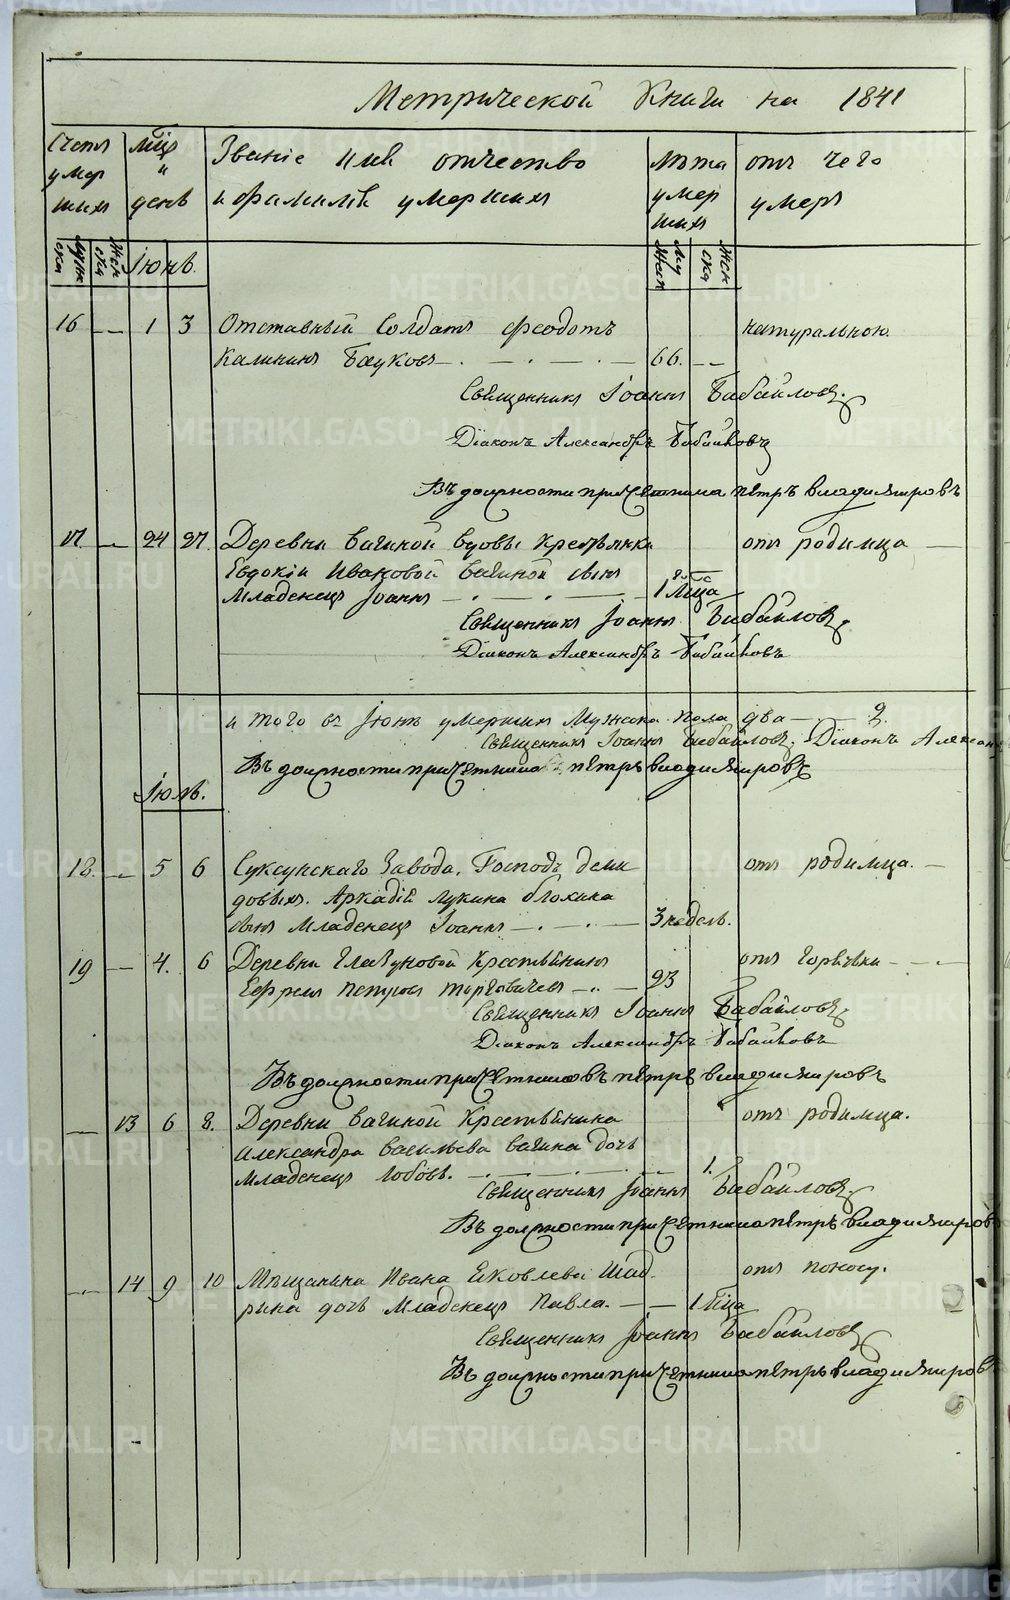 Метрической Книги на 1841
Счетъ умер шихъ
мцъ и день
Званіе имя отчество и фамилія умершихъ
Лѣта умер шихъ
отъ чего умеръ
Муж ска
Жен ска
Іюнь.
Муж ска
Жен ска
16 — 1 3 Отставный Солдатъ Феодотъ натуральною.
Калининъ Бауковъ — . — . — 66. —
Священникъ Іоаннъ Бабайловъ.
Діаконъ Александръ Бабайловъ
Въ должности причетника петръ владимировъ
17. — 24 27. Деревни Вагиной вдовы Крестьянки отъ родимца —
Евдокіи Ивановой Вагиной сынъ
Младенецъ Іоаннъ — . — . — 1 Мца
Священникъ Іоаннъ Бабайловъ.
Діаконъ Александръ Бабайловъ
и того въ Іюнѣ умершихъ Мужска пола два — 2.
Священникъ Іоаннъ Бабайловъ. Діаконъ Алексан
Въ должности причетника петръ владимировъ
Іюль.
18. — 5 6 Суксунскаго Завода. Господъ деми отъ родимца. —
довыхъ. Аркадій Лукина блохина
сынъ Младенецъ Іоаннъ — . — . — 3 недель.
19 — 4. 6 Деревни Глазуновой Крестьянинъ отъ горячки — — . —
Ефремъ Петровъ — . — 23
Священникъ Іоаннъ Бабайловъ
Діаконъ Александръ Бабайловъ
Въ должности причетника въ петръ владимировъ
— 13 6 8. Деревни Вагиной Крестьянина отъ родимца.
Александра Васильева Вагина дочь
Младенецъ Любовь. — . — . — 1.
Священникъ Іоаннъ Бабайловъ.
Въ должности причетника петръ владимиров
— 14 9 10 Мѣщанина Ивана Яковлева Шад отъ поносу.
рина дочь Младенецъ Павла. — — 1 Мца
Священникъ Іоаннъ Бабайловъ
Въ должности причетника петръ владимиров
METRIKI.GASO-URAL.RU